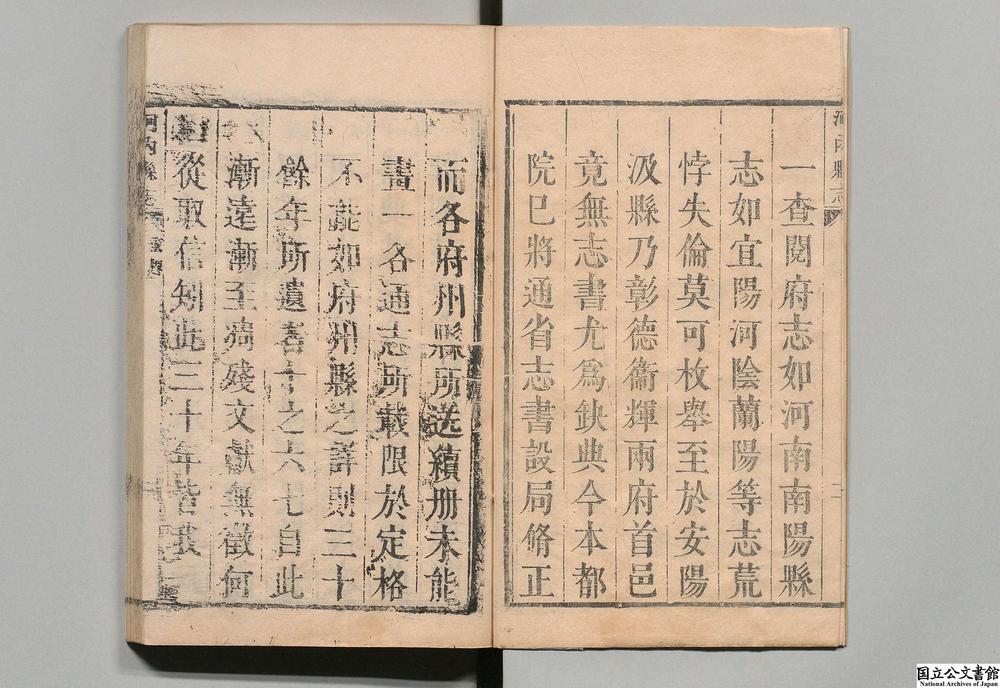 一查閱府志如河南南陽縣
志如宜陽河陰蘭陽等志荒
悖失倫莫可枚舉至於安陽
汲縣乃彰德衞輝兩府首邑
竟無志書尤爲鈌典今本都
院已將通省志書設局脩正
而各府州縣所送續册未能
畫一各通志所載限於定格
不能如府州縣之詳則三十
餘年所遺喜十之六七自此
漸遠漸至殘文獻無徵何
從取信矧此三十年皆
河內縣志
國立公文書館
National Archives of Japan